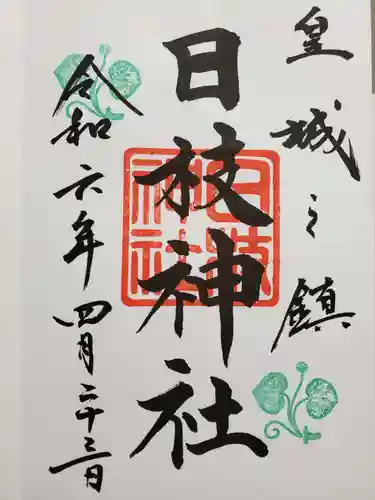 皇城之鎮
日枝神社
日枝
神社
令和六年四月二十三日